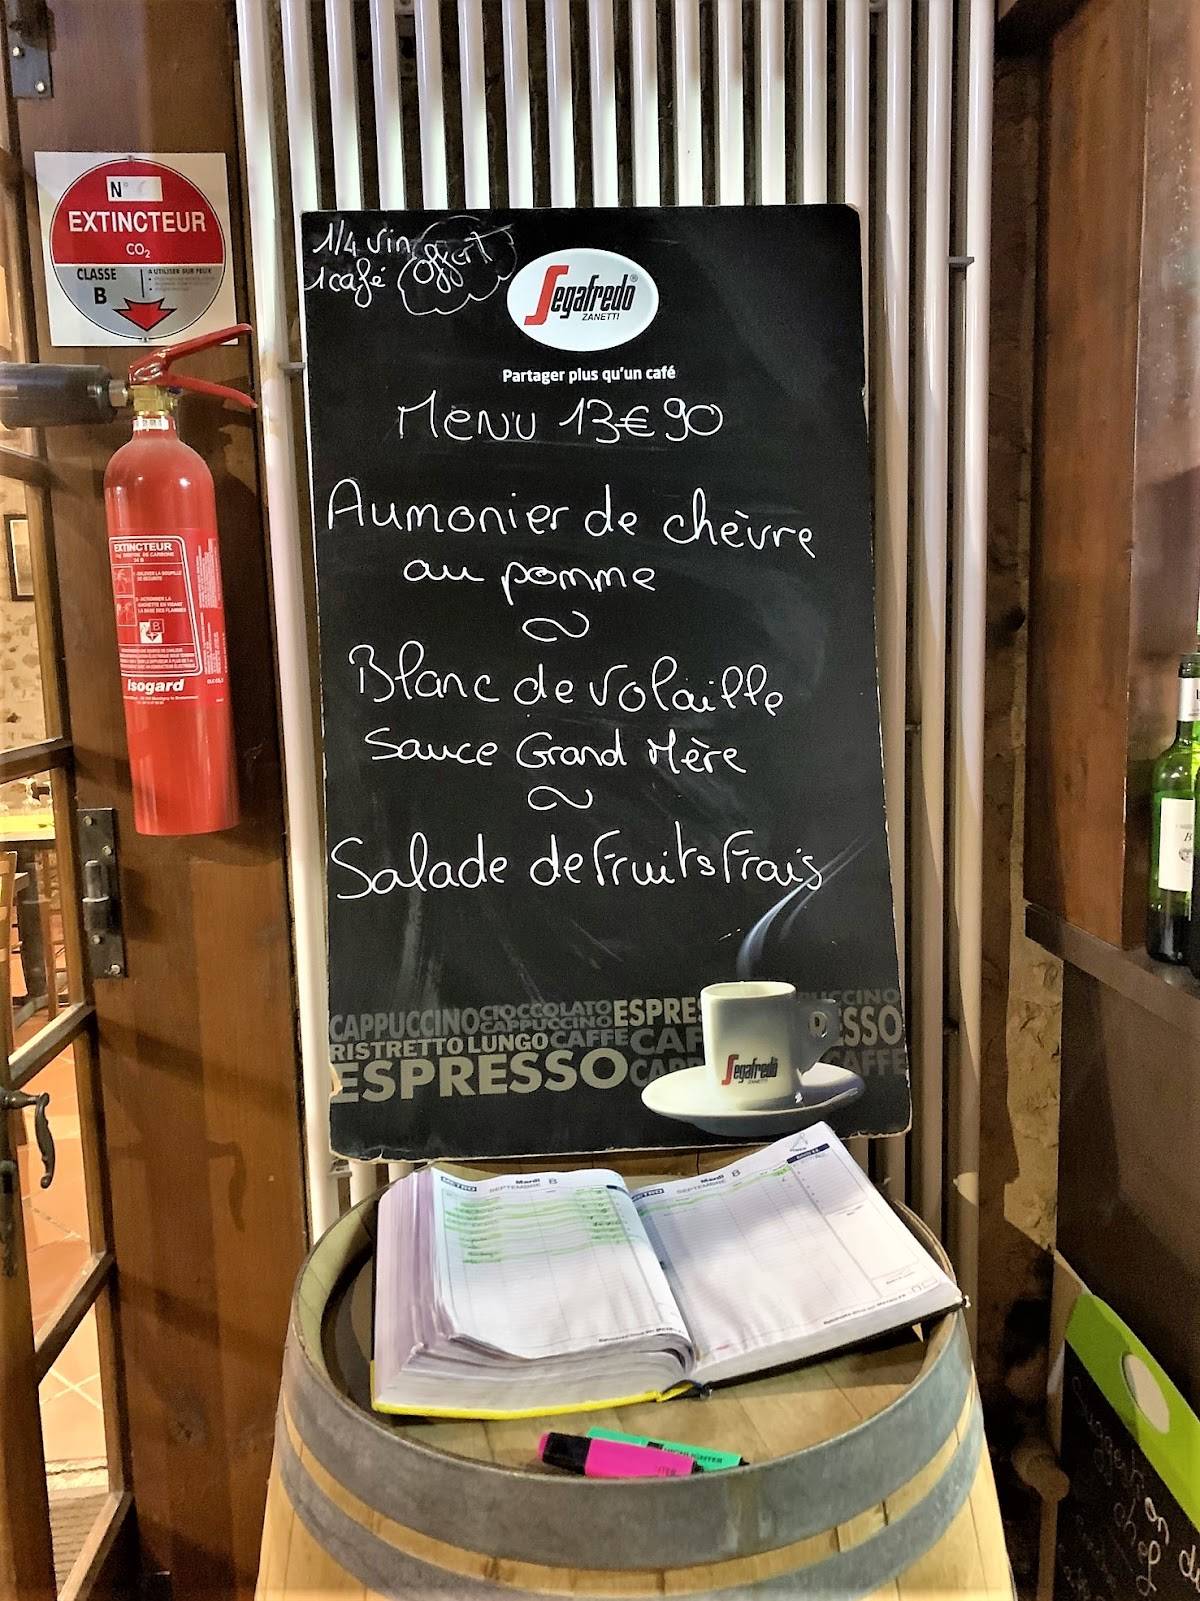 N°
EXTINCTEUR
CO2
CLASSE
B
A UTILISER SUR FEUX
EXTINCTEUR
Isogard
1/4 vin
1 café
offert
Segafredo
ZANETTI
Partager plus qu'un café
Menu 13€90
Aumonier de chèvre
au pomme
Blanc de volaille
Sauce Grand Mère
Salade de Fruits Frais
CAPPUCCINO CIOCCOLATO ESPRES
CAPPUCCINO
RISTRETTO LUNGO CAFFE CAF
ESPRESSO
ESSO
CAFFE
Segafredo
ZANETTI
METRO Mardi 8
SEPTEMBRE
METRO Mardi 8
SEPTEMBRE
HIGHLIGHTER